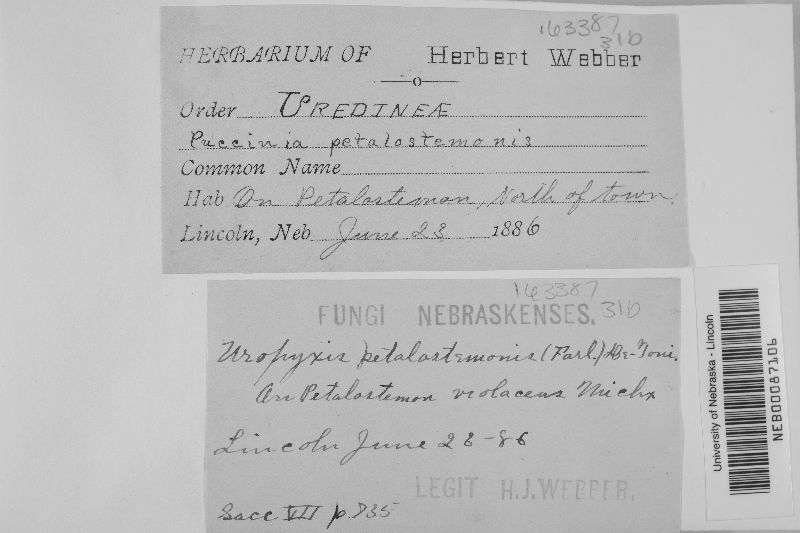 163387
31b
HERBARIUM OF Herbert Webber
Order UREDINEÆ
Puccinia petalostemonis
Common Name
Hab On Petalostemon, North of town.
Lincoln, Neb June 23 1886
163387
31b
FUNGI NEBRASKENSES.
Uropyxis petalostemonis (Farl.) De-Toni.
On Petalostemon violaceus Michx
Lincoln June 23-86
LEGIT H.J. WEBBER.
Sacc VII p. 735
University of Nebraska - Lincoln
NEB00087106